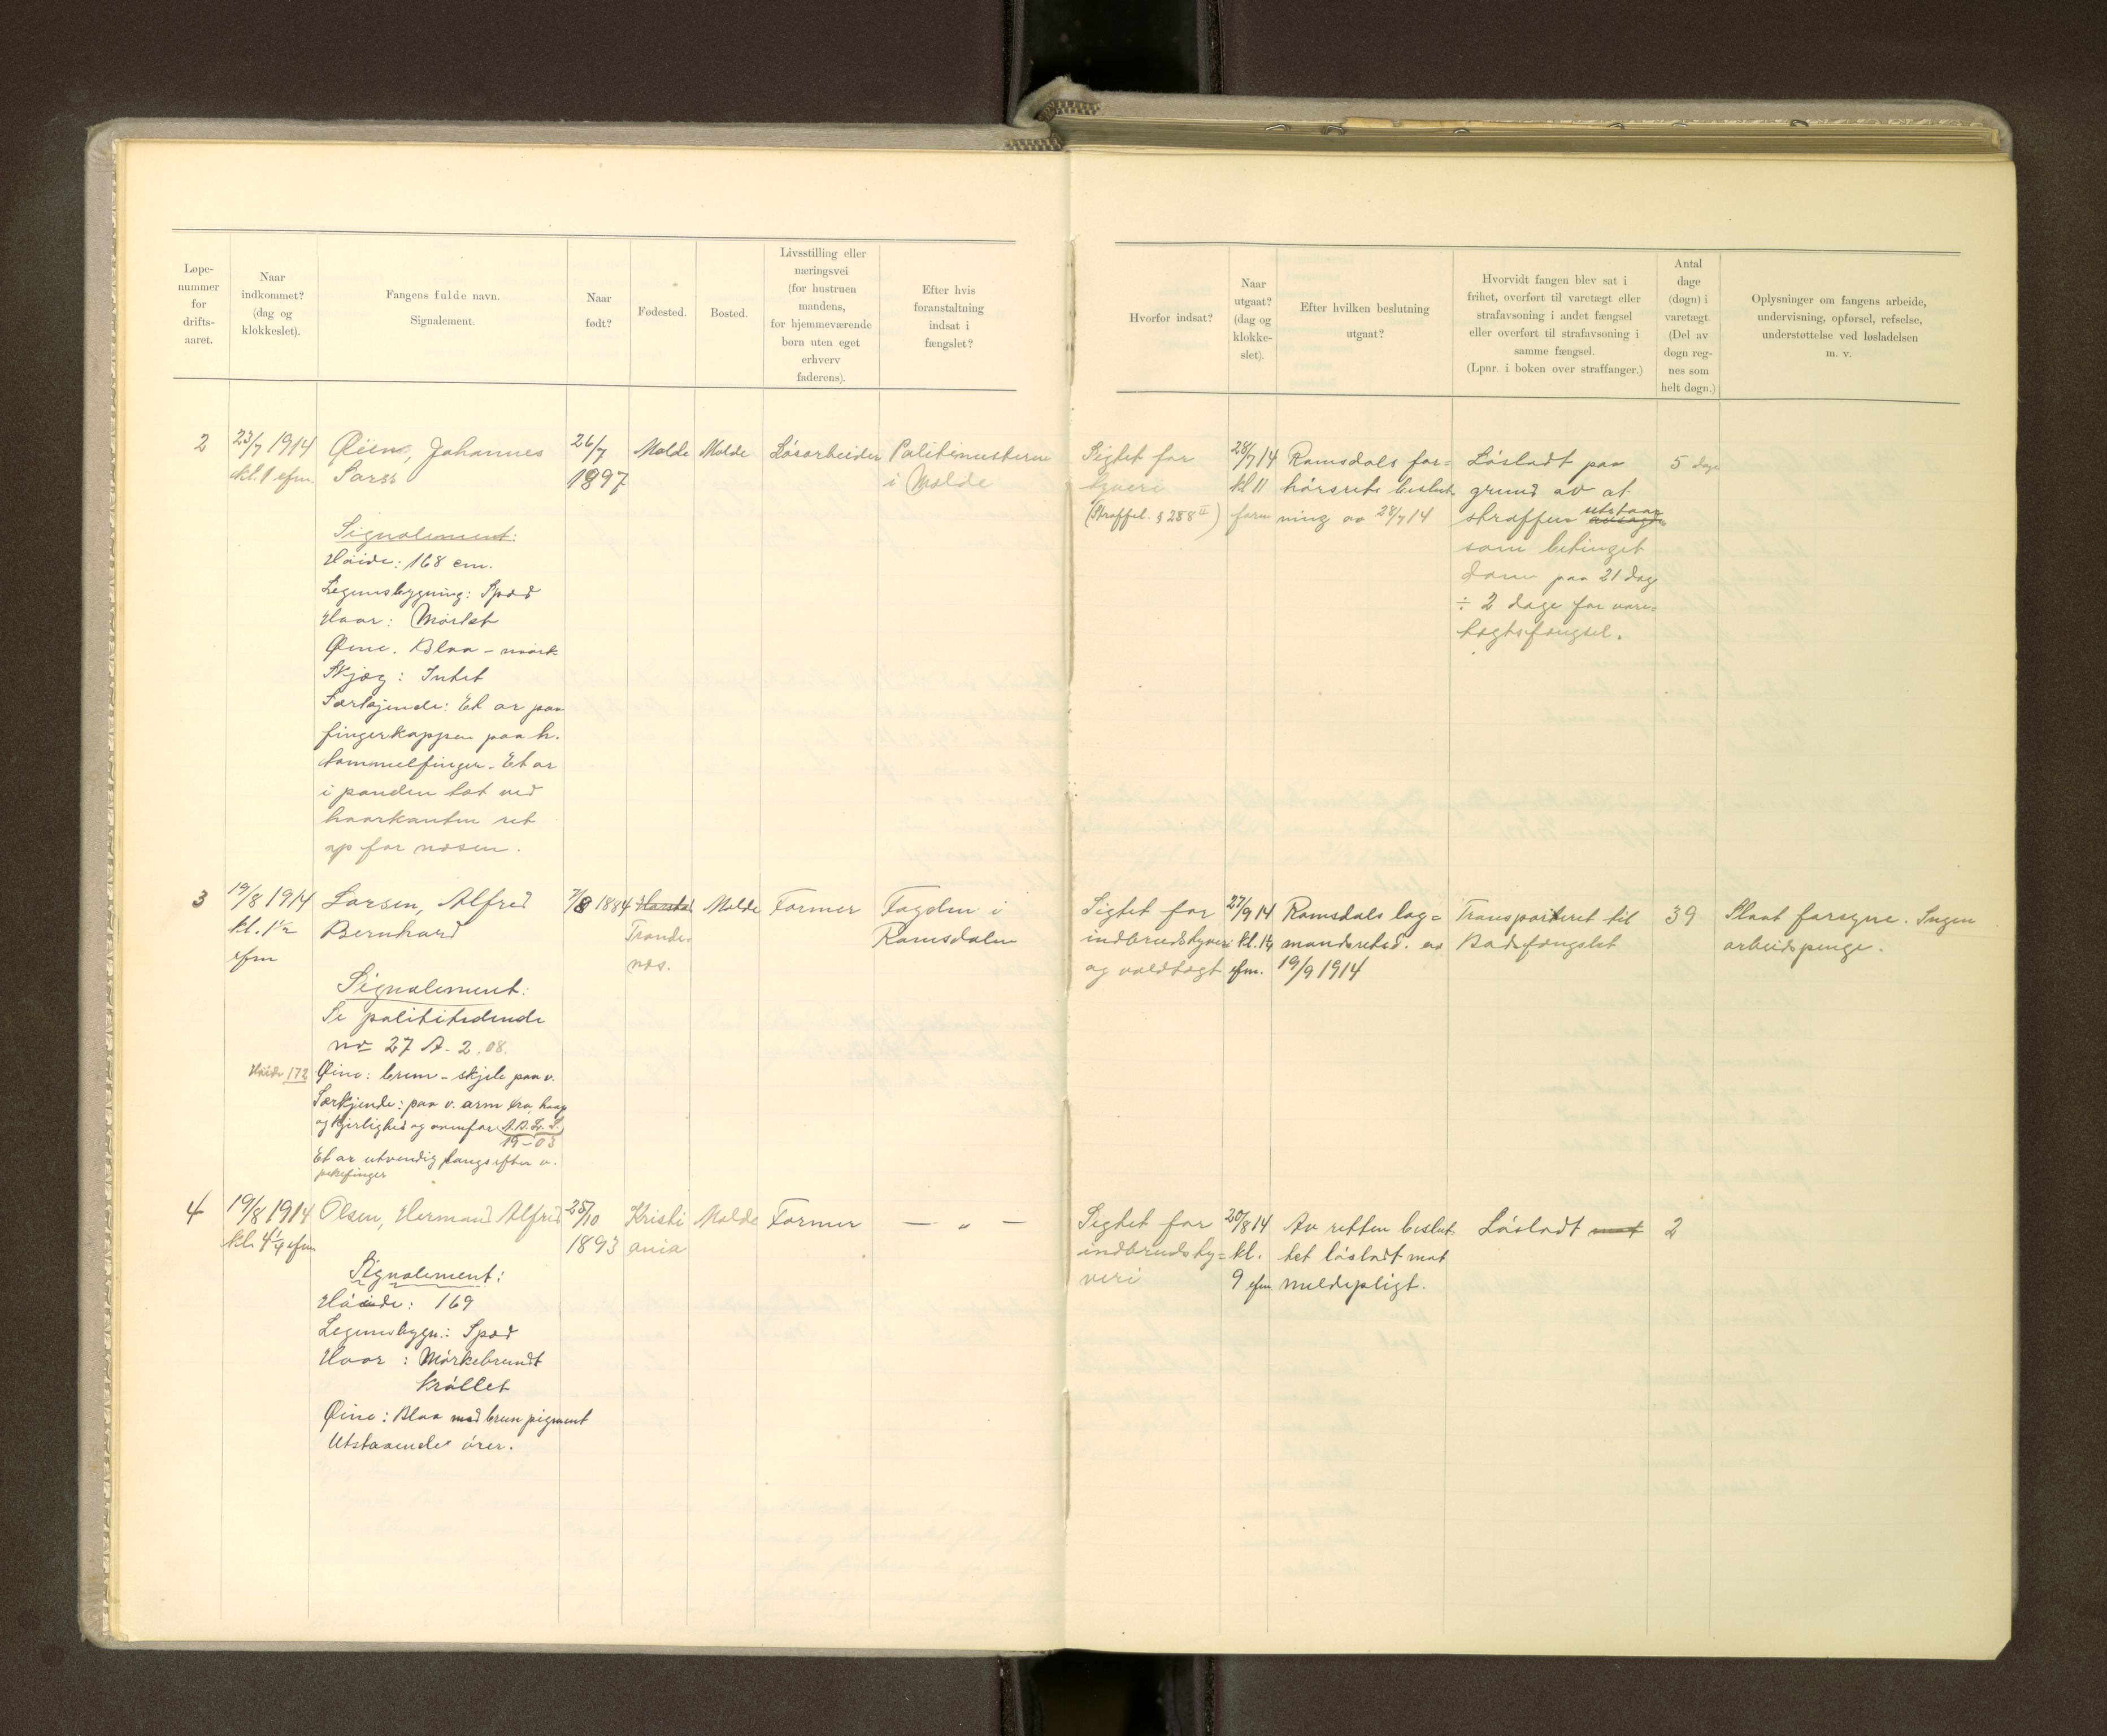 Løpe-
nummer
for
drifts-
aaret.
Naar
indkommet?
(dag og
klokkeslet).
Fangens fulde navn.
Signalement.
Naar
født?
Fødested.
Bosted.
Livsstilling eller
næringsvei
(for hustruen
mandens,
for hjemmeværende
børn uten eget
erhverv
faderens).
Efter hvis
foranstaltning
indsat i
fængslet?
Hvorfor indsat?
Naar
utgaat?
(dag og
klokke-
slet).
Efter hvilken beslutning
utgaat?
Hvorvidt fangen blev sat i
frihet, overført til varetægt eller
strafavsoning i andet fængsel
eller overført til strafavsoning i
samme fængsel.
(Lpnr. i boken over straffanger.)
Antal
dage
(døgn) i
varetægt
(Del av
døgn reg-
nes som
helt døgn.)
Oplysninger om fangens arbeide,
undervisning, opførsel, refselse,
understøttelse ved løsladelsen
m. v.
2
23/7 1914
kl. 1 efm.
Øien, Johannes
Signalement:
Høide: 168 cm.
Legemsbygning: Spæd
Haar: Mørket
Øine. Blaa - mørk
Skjæg: Intet
Særkjende: Et ar paa
fingerkappen paa h.
tommelfinger. Et ar
i panden tæt ved
haarkanten ret
op for næsen.
26/7
1897
Molde
Molde
Løsarbeider
Politimesteren
i Molde
Sigtet for
tyveri
(Straffel. § 258 II)
28/7 14
kl 11
form
Romsdals for=
hørsrets beslut
ning av 28/7 14
Løsladt paa
grund av at
straffen utstaar
som betinget
dom paa 21 dag
÷ 2 dage for vare=
tægtsfængsel.
5 dage
3
19/8 1914
kl. 1½
efm
Larsen, Alfred
Bernhard
Signalement:
Se polititidende
no 27 A- 2. 08.
Høide 172
Øine: brun - skjele paa v.
Særkjende: paa v. arm tro, haap
og kjærlighed og ovenfor A.B.L.
19-03
Et ar utvendig langs efter v.
pekefinger
7/8 1884
Harstad
Tronde-
næs.
Molde
Former
Fogden i
Romsdalen
Sigtet for
indbrudstyveri
og voldtægt
27/9 14
kl. 1¼
efm.
Romsdals lag=
mandsretsd. av
19/9 1914
Transporteret til
Bodsfængslet
39
Straf forsyne. Ingen
arbeidspenge.
4
19/8 1914
kl. 4¼ efm
Olsen, Herman Alfred
Signalement:
Høide: 169
Legemsbygn.: Spæd
Haar: Mørkebrundt
krøllet
Øine: Blaa med brun pigment
Utstaaende ører.
25/10
1893
Kristi
ania
Molde
Former
— " —
Sigtet for
indbrudsty=
veri
20/8 14
kl.
9 efm
Av retten beslut
tet løsladt mot
meldepligt.
Løsladt mot
2